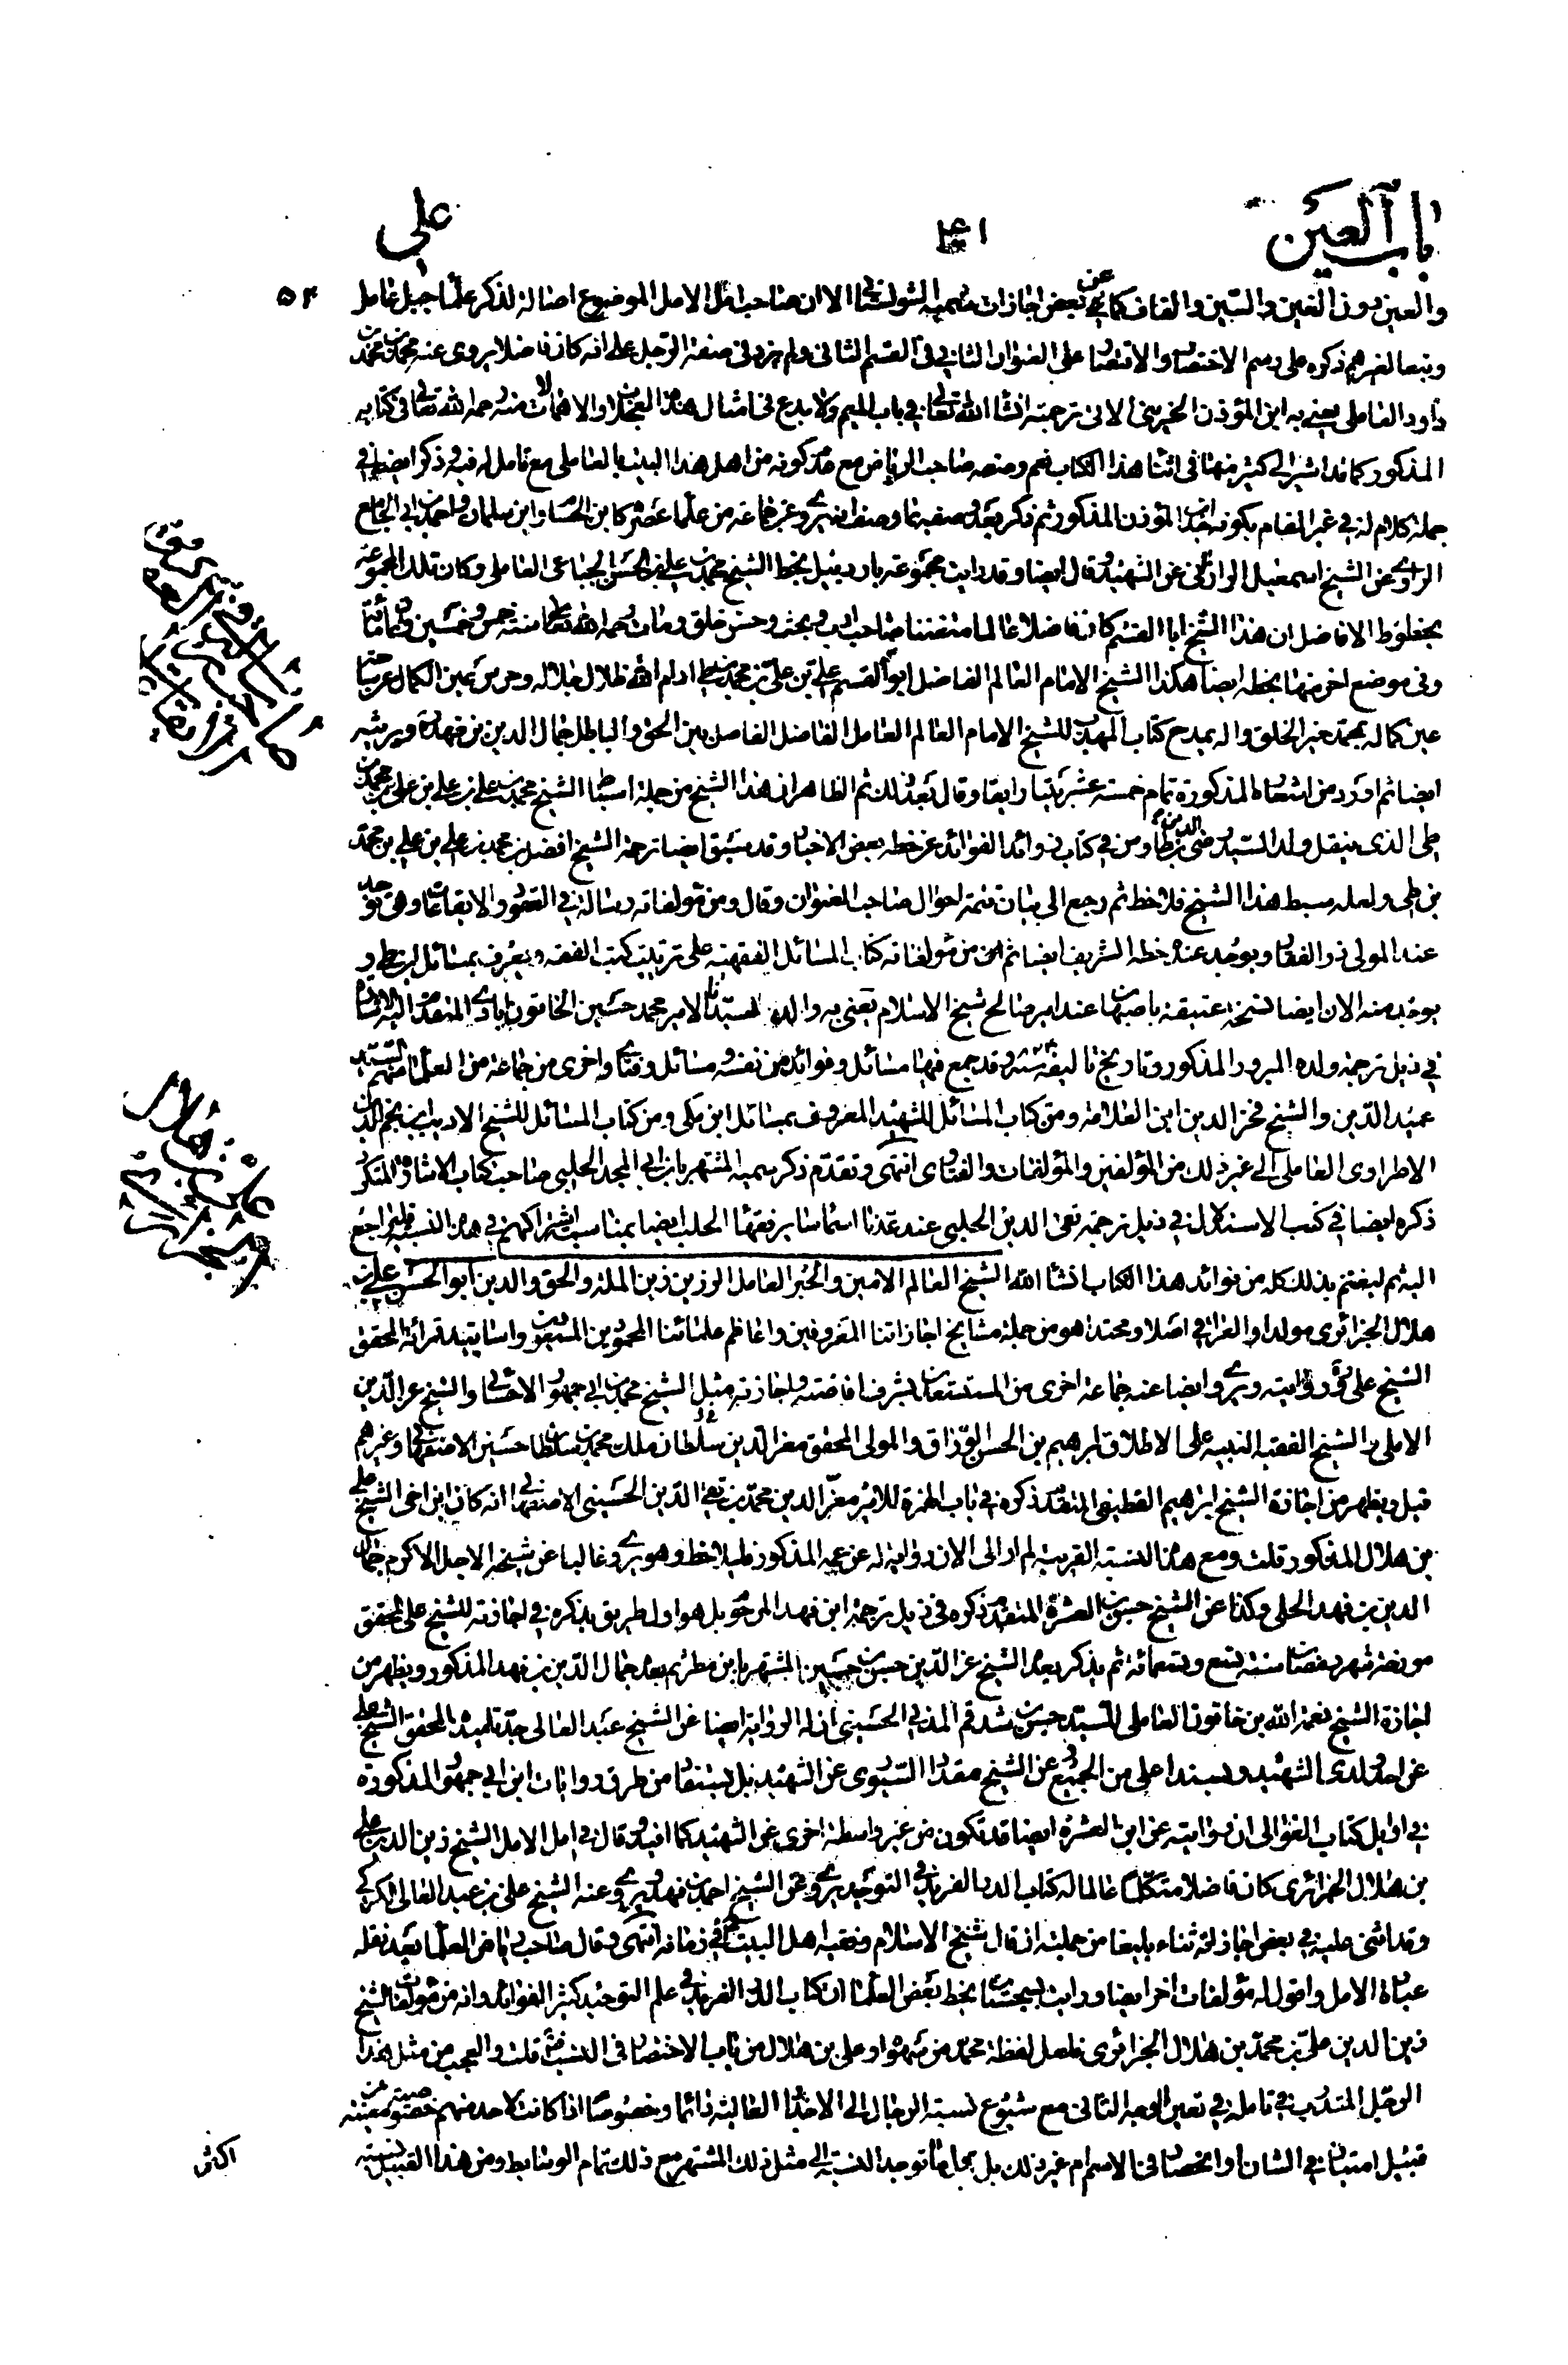 باب العين
علي
والعين بدون الغين والسين والقاف كما في عن بعض اجازات الا ان صاحب امل الامل الموضوع اصالة لذكر علماء جبل عامل
وتبعا لغيرهم ذكره على رسم الاختصار والاقتصار على العنوان الثاني في القسم الثاني ولم يزد في صفة الرجل على انه كان فاضلا يروى عنه محمد بن محمد بن
داود العاملى يعني به ابن المؤذن الجزيني الاتى ترجمته انشاء الله تعالى في باب الميم ولا بدع في امثال هذه والاهمالات منه رحمه الله تعالى في كتابه
المذكور كما قد اشير الى كثير منها في اثناء هذا الكتاب نعم وصفه صاحب الرياض مع عدم كونه من اهل هذا البيت بالعاملى مع تامل له فيه وذكر ايضا في
جملة كلام له في غير المقام بكونه المؤذن المذكور ثم ذكر بعد وصفيه وصفا انه يروى عن جماعة من علماء عصره كابن الحسام وابن سليمان واحمد بن الحاج
الراوي عن الشيخ اسمعيل الرازى عن الشهيد وقال ايضا وقد رايت مجموعة باردبيل بخط الشيخ محمد بن علي بن الحسن الجباعى العاملى وكان تلك المجموعة
بخطوط الافاضل ان هذا الشيخ ابا القسم كان فاضلا عالما متفننا صاحب ادب وبحث وحسن خلق ومات رحمه الله تعالى سنة خمس وخمسين وثمانمائة
وفى موضع اخر منها بخطه ايضا هكذا الشيخ الامام العالم الفاضل ابو القسم علي بن علي بن محمد بن طي ادام الله ظلال جلاله وحرس عين الكمال عن
عين كماله بمحمد خير الخلق واله يمدح كتاب المهذب للشيخ الامام العالم العامل الفاضل الفاصل بين الحق والباطل جمال الدين بن فهد ويرثيه
ايضا ثم اورد من اشعاره المذكورة تمام خمسة عشر بيتا رايقا وقال بعد ذلك ثم الظاهر ان هذا الشيخ من جملة اسباط الشيخ محمد بن علي بن علي بن محمد بن
طى الذى ينقل ولد السيد رضى الدين بن طاوس في كتاب زوائد الفوائد عن خطه بعض الاخبار وقد سبق ايضا ترجمة الشيخ افضل بن محمد بن علي بن علي بن محمد
بن طى ولعله سبط هذا الشيخ فلاحظ ثم رجع الى بيان تتمة احوال صاحب العنوان وقال ومن مؤلفاته رسالة في العقود والايقاعات وهى توجد
عند المولى ذو الفقار ويوجد عنده خطه الشريف ايضا ثم ان من مؤلفاته كتاب المسائل الفقهية على ترتيب كتب الفقه ويعرف بمسائل ابن طى و
يوجد منه الان ايضا نسخة عتيقة باصبهان عند امير صالح شيخ الاسلام يعنى به والد السيد الامير محمد حسين الخاتون ابادى المتقدم اليه الاشارة
في ذيل ترجمة ولده المبرور المذكور وتاريخ تاليفه وقد جمع فيها مسائل وفوائد من نفسه ومسائل وفتاوى اخرى من جماعة من العلماء منهم السيد
عميد الدين والشيخ فخر الدين ابن العلامة ومن كتاب المسائل للشهيد المعروف بمسائل ابن مكى ومن كتاب المسائل للشيخ الاديب ابن نجم الدين
الاطراوى العاملى الى غير ذلك من المؤلفين والمؤلفات والفتاوى انتهى وتقدم ذكر سميه المشتهر بابن ابي المجد الحلبى صاحب كتاب الاشارة المتكرر
ذكره ايضا في كتب الاستدلال في ذيل ترجمة تقى الدين الحلبى عند عدنا اسماء سائر فقهاء الحلب ايضا بمناسبة اشتراكهم في هذه النسبة فليراجع
اليه ثم ليغتنم بذلك كله من فوائد هذا الكتاب انشاء الله الشيخ العالم الامين والحبر العامل الرزين زين الملة والحق والدين ابو الحسن علي بن
هلال الجزائرى مولدا والعراقي اصلا ومحتدا هو من جملة مشايخ اجازاتنا المعروفين واعاظم علمائنا المحمودين واساتيد قراءة المحقق
الشيخ على وروايته ويروى ايضا عنه جماعة اخرى من المستسعدين بشرف افاضته واجازته مثل الشيخ محمد بن ابي جمهور الاحسائى والشيخ عز الدين
الاملى والشيخ الفقيه النبيه على الاطلاق ابرهيم بن الحسن الوراق والمولى المحقق معز الدين سلطان ملك محمد بن سلطان حسين الاصفهانى وغيرهم
قيل ويظهر من اجازة الشيخ ابراهيم القطيفى المتقدم ذكره في باب الهمزة للامير معز الدين محمد بن تقى الدين الحسينى الاصفهانى انه كان ابن اخى الشيخ على
بن هلال المذكور قلت ومع هذه النسبة القريبة لم ار الى الان رواية له عن عمه المذكور فليلاحظ وهو يروى غالبا عن شيخه الاجل الاكرم جمال
الدين بن فهد الحلى وكذا عن الشيخ حسن بن العشرة المتقدم ذكره فى ذيل ترجمة ابن فهد المرحوم بل هو اول طريق يذكره في اجازته للشيخ على المحقق
مورخة شهر رمضان سنة تسع وتسعمائة ثم يذكر بعده الشيخ عز الدين حسن بن حسين المشتهر بابن مطر ثم بعده جمال الدين بن فهد المذكور ويظهر من
اجازة الشيخ نعمة الله بن خاتون العاملى للسيد حسن بن شدقم المدنى الحسينى ان له الرواية ايضا عن الشيخ عبد العالى جد تلميذه المحقق الشيخ على
عن احد ولدى الشهيد وبسند اعلى من الجميع عن الشيخ مقداد السيورى عن الشهيد بل يستفاد من طرق روايات ابن ابي جمهور المذكورة
في اوايل كتاب الغوالى ان روايته عن ابن العشرة ايضا قد تكون من غير واسطة اخرى عن الشهيد كما افيد وقال في امل الامل الشيخ زين الدين على
بن هلال الجزائرى كان فاضلا متكلما عالما له كتاب الدر الفريد في التوحيد يروى عن الشيخ احمد بن فهد ويروى عنه الشيخ على بن عبد العالى الكركى
وقد اثنى عليه في بعض اجازاته ثناء بليغا من جملته ان قال شيخ الاسلام وفقيه اهل البيت في زمانه انتهى وقال صاحب رياض العلماء بعد نقله
عبارة الامل واقول له مؤلفات اخر ايضا ورايت بسجستان بخط بعض العلماء ان كتاب الدر الفريد في علم التوحيد كثير الفوائد وانه من مؤلفات الشيخ
زين الدين على بن محمد بن هلال الجزائرى فلعل لفظة محمد من سهوه او على بن هلال من باب الاختصار فى النسب قلت والعجب من مثل هذا
الرجل المتدرب في تامله في تعين الوجه الثانى مع شيوع نسبة الرجال الى الاجداد العالية دائما وخصوصا اذا كانت لاحد منهم خصوصية معينة من
قبيل امتياز في الشان او انحصار فى الاسم ام غير ذلك بل توجد النسبة الى مثل ذلك المشتهر مع ذلك تمام الوسائط ومن هذا القبيل نسبة